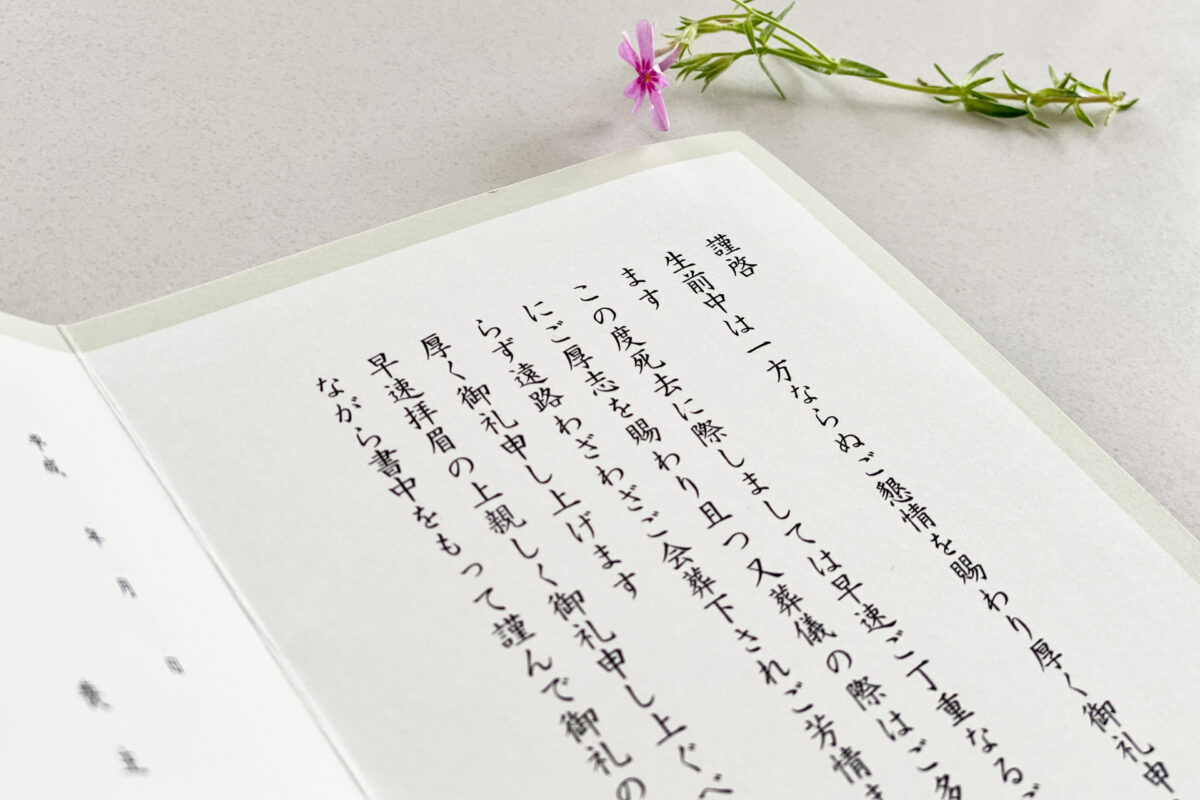 謹啓
生前中は一方ならぬご懇情を賜わり厚く御礼申
ます
この度死去に際しましては早速ご丁重なるご
にご厚志を賜わり且つ又葬儀の際はご多
らず遠路わざわざご会葬下されご芳情ま
厚く御礼申し上げます
早速拝眉の上親しく御礼申し上ぐべ
ながら書中をもって謹んで御礼の
平成 年 月 日
喪主